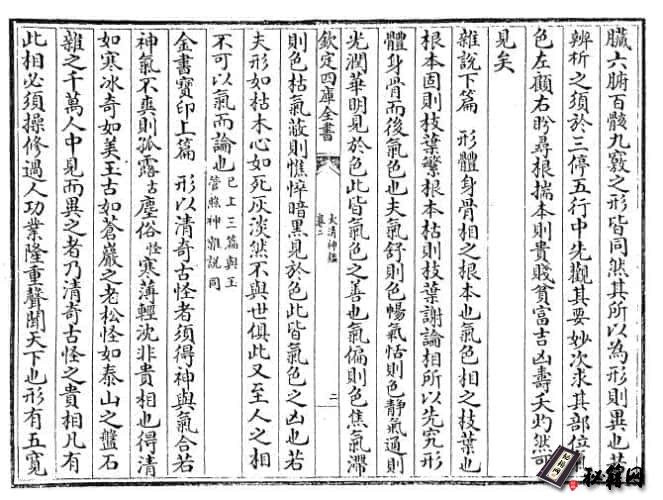 臟六腑百骸九竅之形皆同然其所以為形則異也若
辨析之須於三停五行中先觀其要妙次求其部位
色左顧右盼尋根揣本則貴賤貧富吉凶壽夭灼然可
見矣
雜説下篇 形體身骨相之根本也氣色相之枝葉也
根本固則枝葉繁根本枯則枝葉謝論相所以先究形
體身骨而後氣色也夫氣舒則色暢氣恬則色靜氣通則
光潤華明見於色此皆氣色之善也氣偏則色焦氣滯
欽定四庫全書
太清神鑑
卷二
二
則色枯氣蔽則憔悴暗黑見於色此皆氣色之凶也若
夫形如枯木心如死灰淡然不與世俱此又至人之相
不可以氣而論也已上三篇與玉
管照神雜説同
金書寶印上篇 形以清奇古怪者須得神與氣合若
神氣不爽則孤露古塵俗怪寒薄輕沈非貴相也得清
如寒冰奇如美玉古如蒼巖之老松怪如泰山之盤石
雜之千萬人中見而異之者乃清奇古怪之貴相凡有
此相必須操修過人功業隆重聲聞天下也形有五寬
秘籍网